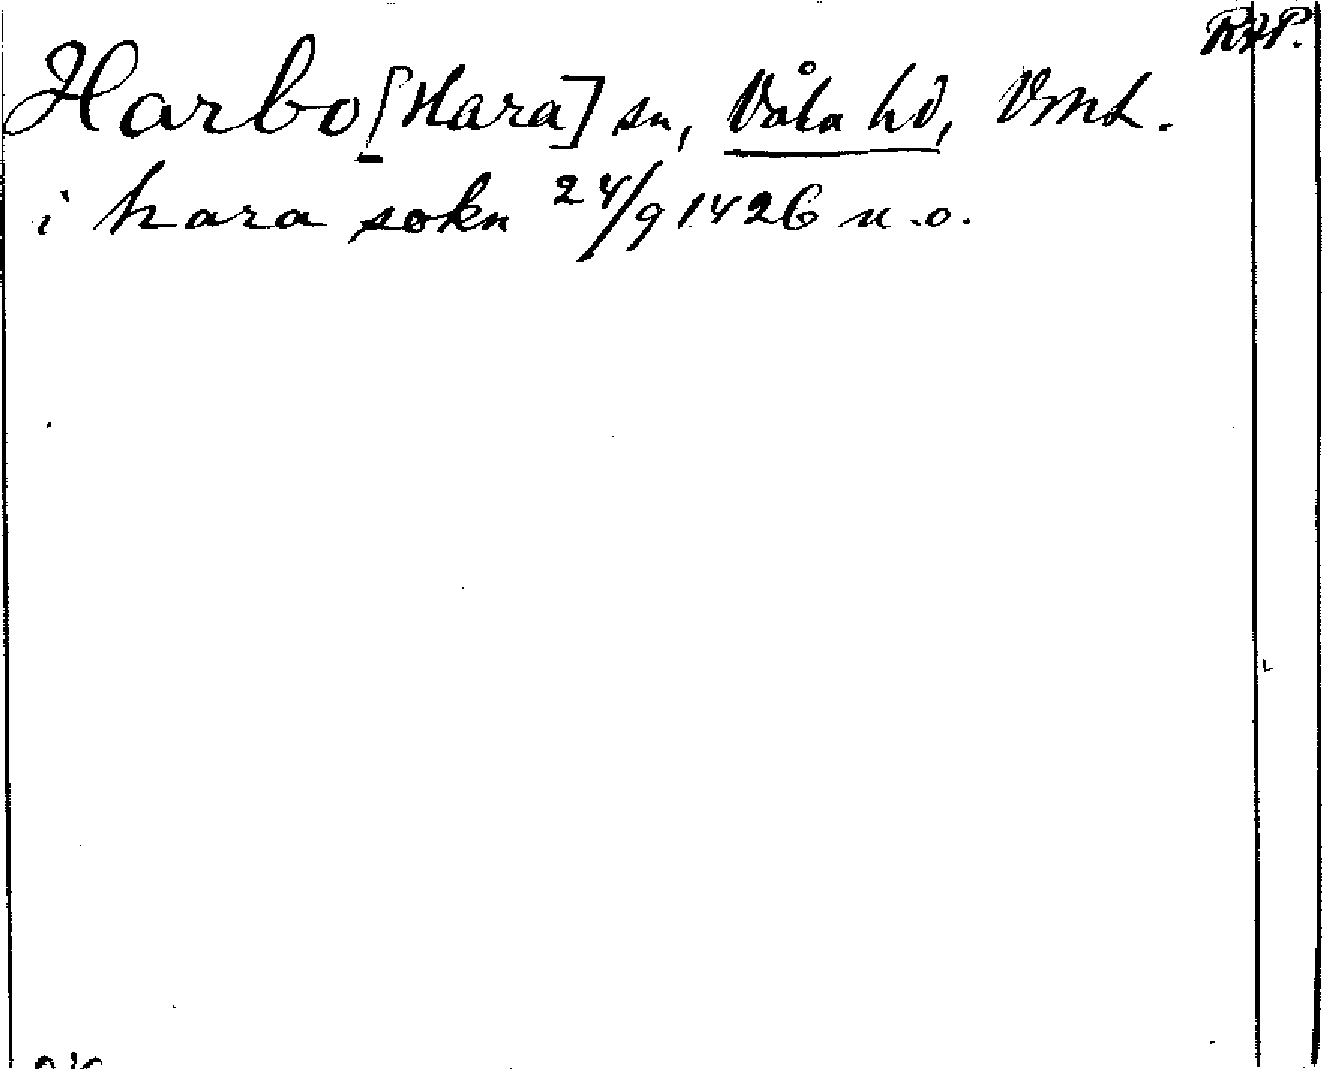 RAP.
Harbo [Hara] sn, Våla hd, Vml.
i hara sokn 24/9 1426 u.o.